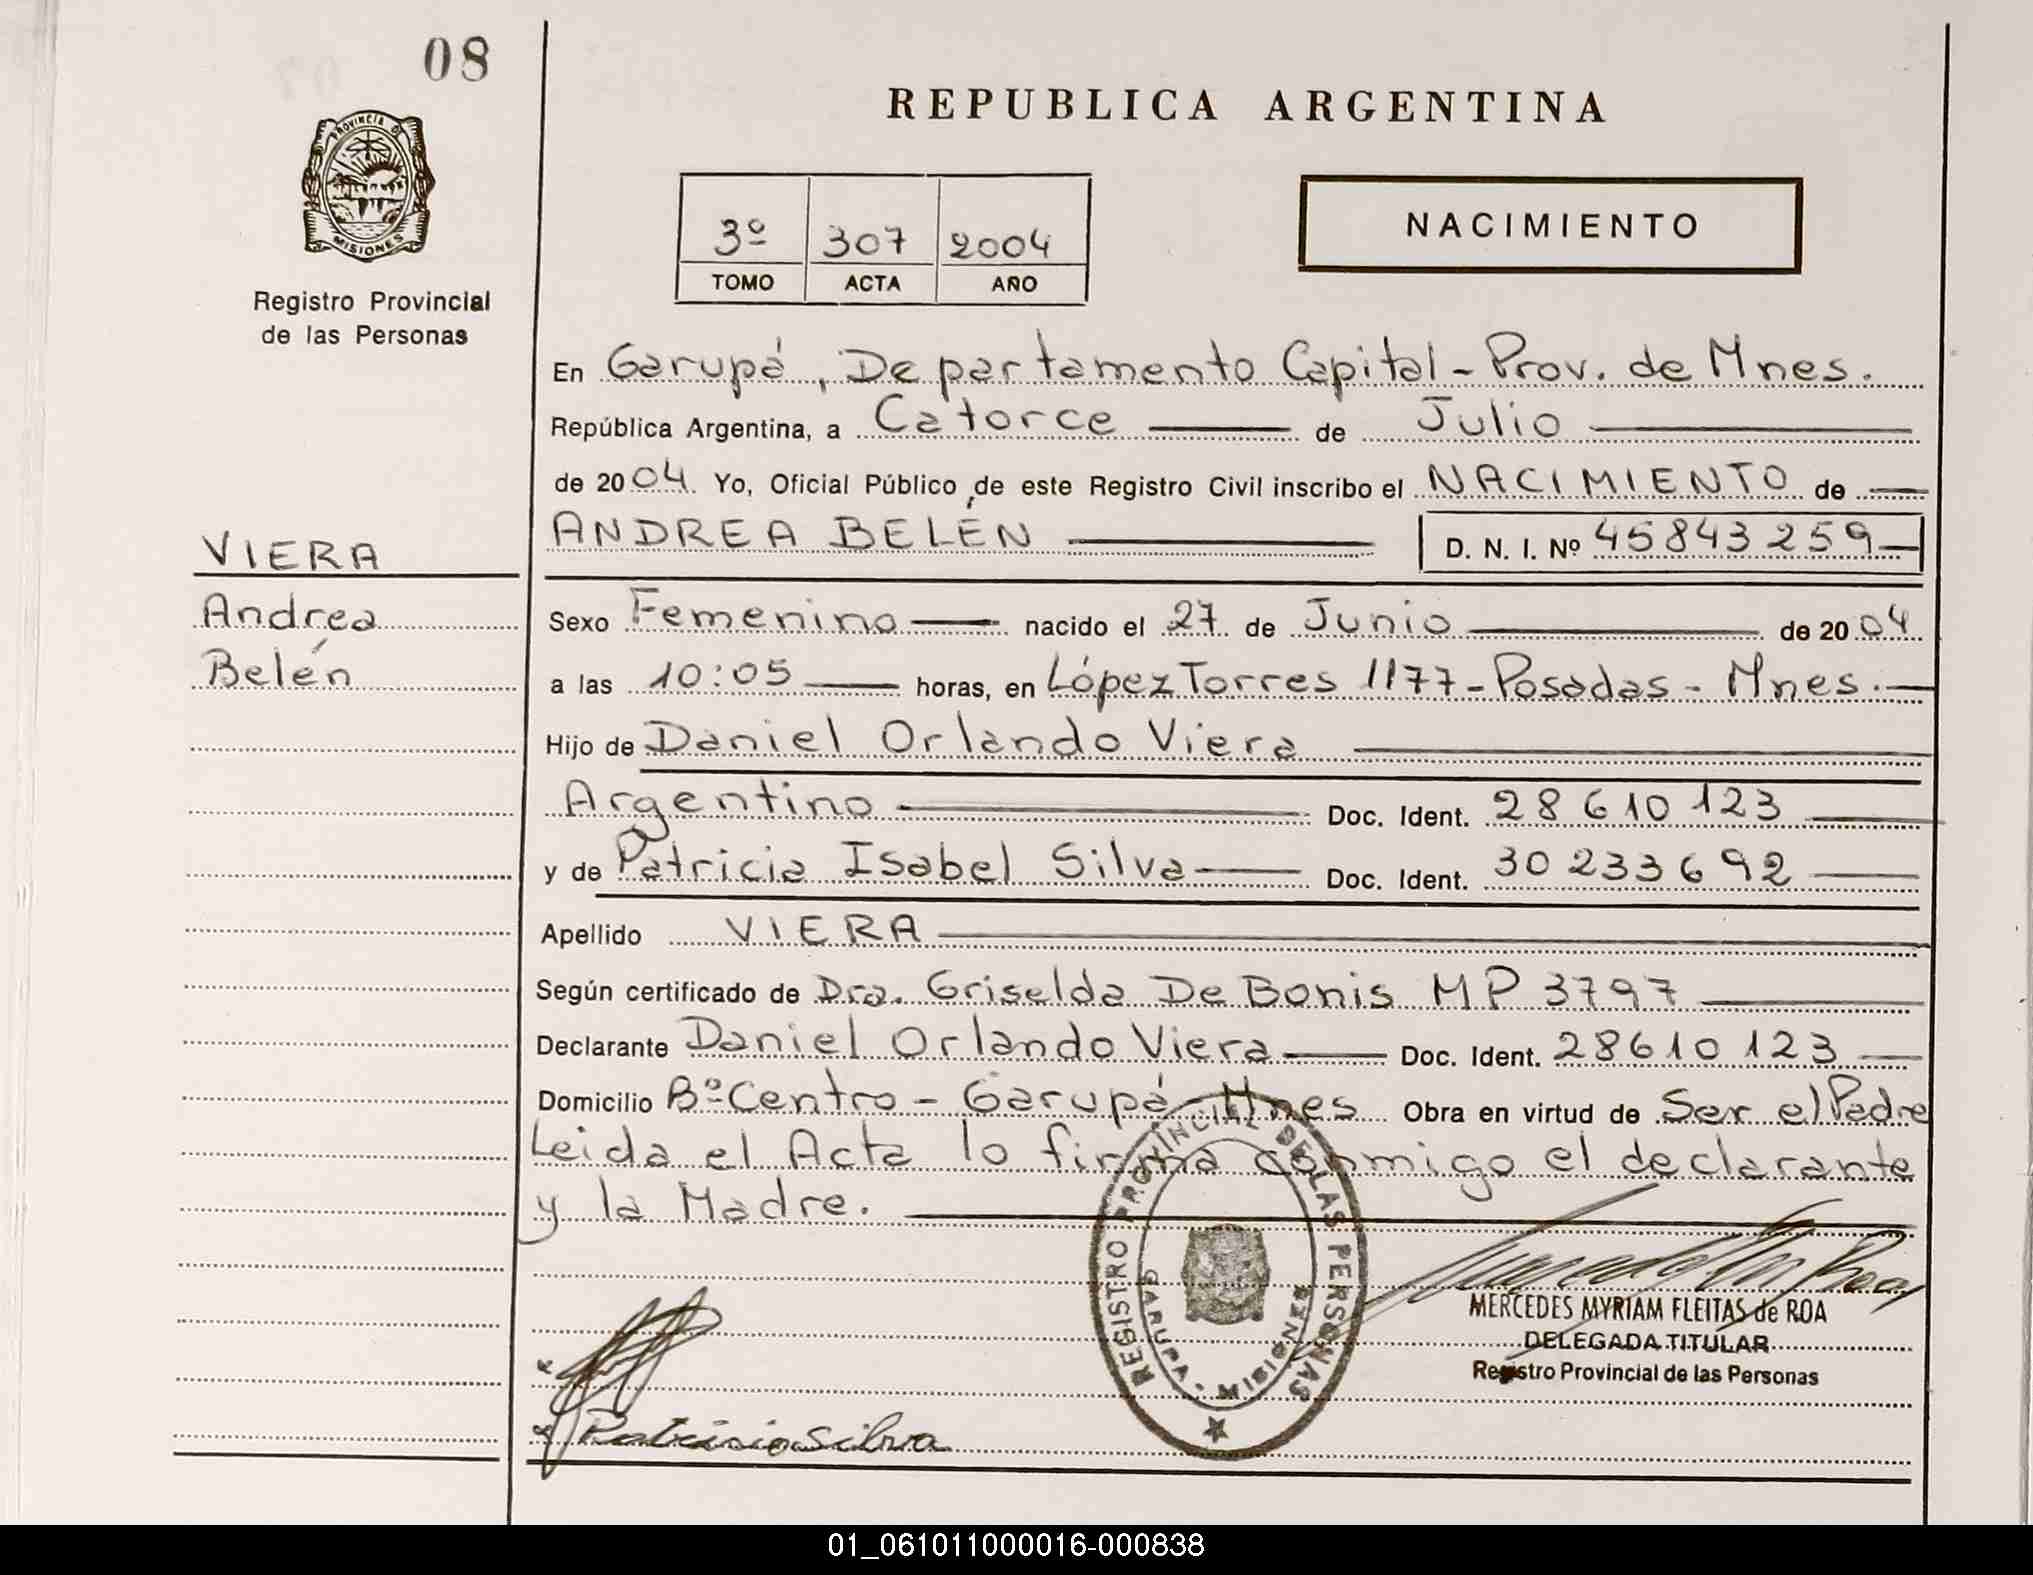 08
REPUBLICA ARGENTINA
PROVINCIA DE
MISIONES
Registro Provincial
de las Personas
3º 307 2004
TOMO ACTA AÑO
NACIMIENTO
En Garupá, Departamento Capital - Prov. de Mnes.
República Argentina, a Catorce de Julio
de 2004 Yo, Oficial Público de este Registro Civil inscribo el NACIMIENTO de
ANDREA BELÉN D. N. I. Nº 45843259
VIERA
Andrea
Belén
Sexo Femenino nacido el 27 de Junio de 2004
a las 10:05 horas, en López Torres 1177 - Posadas - Mnes.
Hijo de Daniel Orlando Viera
Argentino Doc. Ident. 28610123
y de Patricia Isabel Silva Doc. Ident. 30233692
Apellido VIERA
Según certificado de Dra. Griselda De Bonis MP 3797
Declarante Daniel Orlando Viera Doc. Ident. 28610123
Domicilio Bº Centro - Garupá - Mnes Obra en virtud de Ser el Padre
Leida el Acta lo firma conmigo el declarante
y la Madre.
REGISTRO PROVINCIAL DE LAS PERSONAS
GARUPA - MISIONES
MERCEDES MYRIAM FLEITAS de ROA
DELEGADA TITULAR
Registro Provincial de las Personas
Patricia Silva
01_061011000016-000838